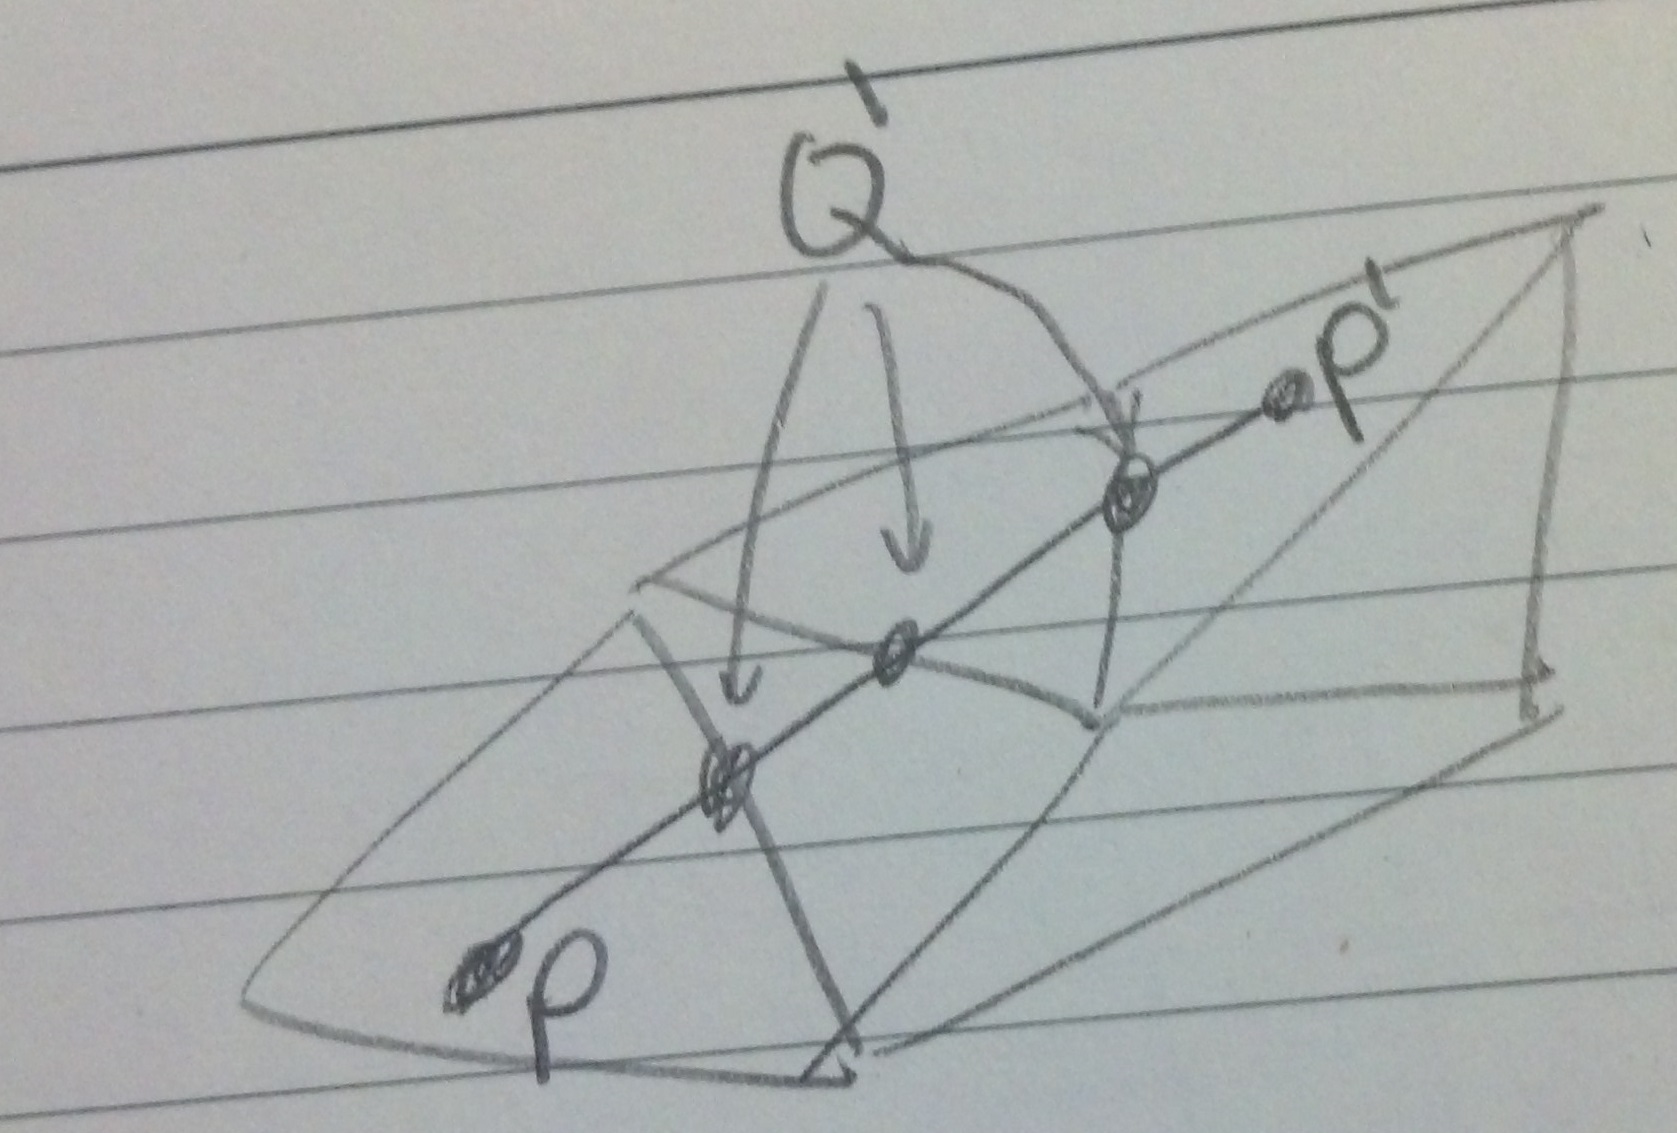 Q'
P'
P